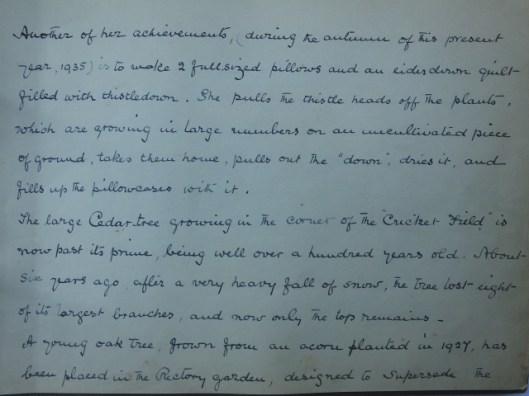 Another of her achievements, (during the autumn of this present
year, 1935) is to make 2 full sized pillows and an eiderdown quilt
filled with thistledown. She pulls the thistle heads off the plants,
which are growing in large numbers on an uncultivated piece
of ground, takes them home, pulls out the "down", dries it, and
fills up the pillowcases with it.
The large Cedar tree growing in the corner of the "Cricket Field" is
now past its prime, being well over a hundred years old. About
six years ago, after a very heavy fall of snow, the tree lost eight
of its largest branches, and now only the top remains -
A young oak tree, grown from an acorn planted in 1927, has
been placed in the Rectory garden, designed to supersede the